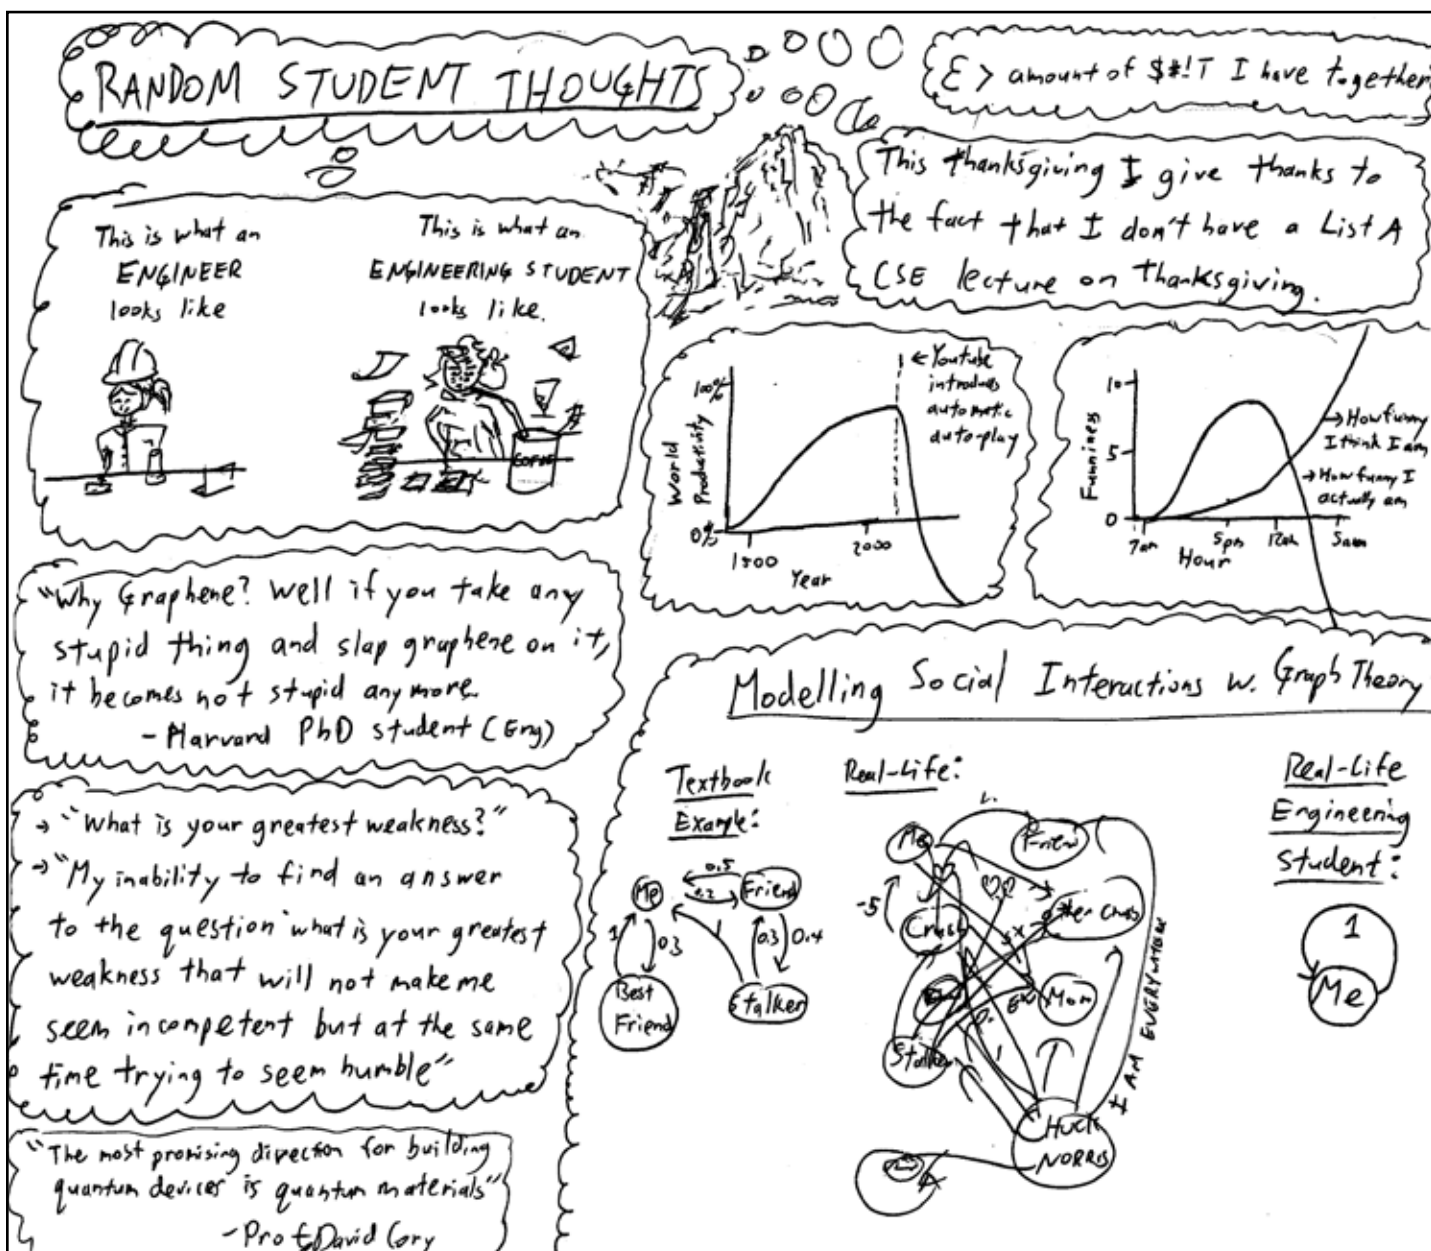 RANDOM STUDENT THOUGHTS
Ɛ > amount of $#!T I have together
This thanksgiving I give thanks to
the fact that I don't have a List A
CSE lecture on Thanksgiving.
This is what an
ENGINEER
looks like
This is what an
ENGINEERING STUDENT
looks like.
COFFEE
100%
World
Productivity
0%
1800
2000
Year
← Youtube
introduces
automatic
auto-play
10
5
0
Funniness
7am
5pm
12am
5am
Hour
→ How funny
I think I am
→ How funny I
actually am
"Why Graphene? Well if you take any
stupid thing and slap graphene on it,
it becomes not stupid anymore.
- Harvard PhD student (Eng)
→ "What is your greatest weakness?"
→ "My inability to find an answer
to the question what is your greatest
weakness that will not make me
seem incompetent but at the same
time trying to seem humble"
"The most promising direction for building
quantum devices is quantum materials"
- Prof David Cory
Modelling Social Interactions w. Graph Theory
Textbook
Example:
Me
0.5
0.2
Friend
1
0.3
1
0.3
0.4
Best
Friend
Stalker
Real-Life:
Me
Friend
-5
Crush
Other Crush
Mom
Stalker
I AM EVERYWHERE
NORRIS
Real-Life
Engineering
Student:
1
Me